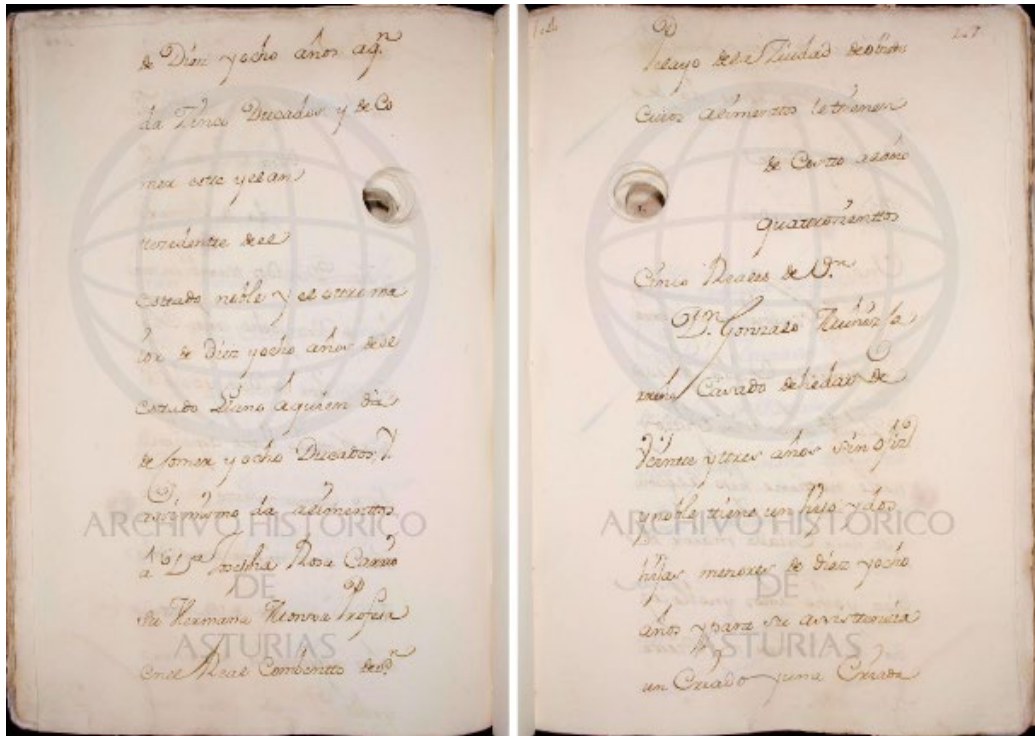 de Diez y ocho años aq.n
da Zinco Ducados y de Co
mer este y el an
tezedente de el
estado noble y el otro ma
ior de Diez y ocho años de el
estado Llano a quien da
de Comer y ocho Ducados, Y
assimismo da alimenttos
a D.a Josepha Rosa
su Hermana Monxa Profesa
en el Real Combentto de S.n
Pelayo de la Ziudad de Oviedo
Cuios alimenttos le tienen
de Costo
quattrozienttos
Cinco Reales de V.n
D.n Gonzalo
Casado de hedad de
Veintte y tres años sin ofizio
y noble tiene un hijo y dos
hijas menores de diez y ocho
años y para su assisttenzia
un Criado y una Criada
ARCHIVO HISTÓRICO
DE
ASTURIAS
ARCHIVO HISTÓRICO
DE
ASTURIAS